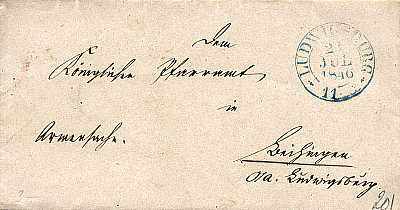 LUDWIGSBURG
JUL
1846
Dem
Königlichen Pfarramt
in
Armensache.
Beihingen
OA. Ludwigsburg
201